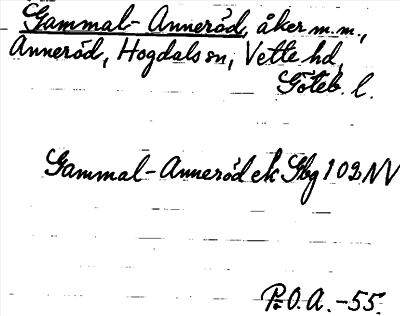 Gammal-Anneröd, åker m.m.,
Anneröd, Hogdals sn, Vette hd,
Göteb. l.
Gammal-Anneröd ek Gbg 102 NV
P.O.A. -55.